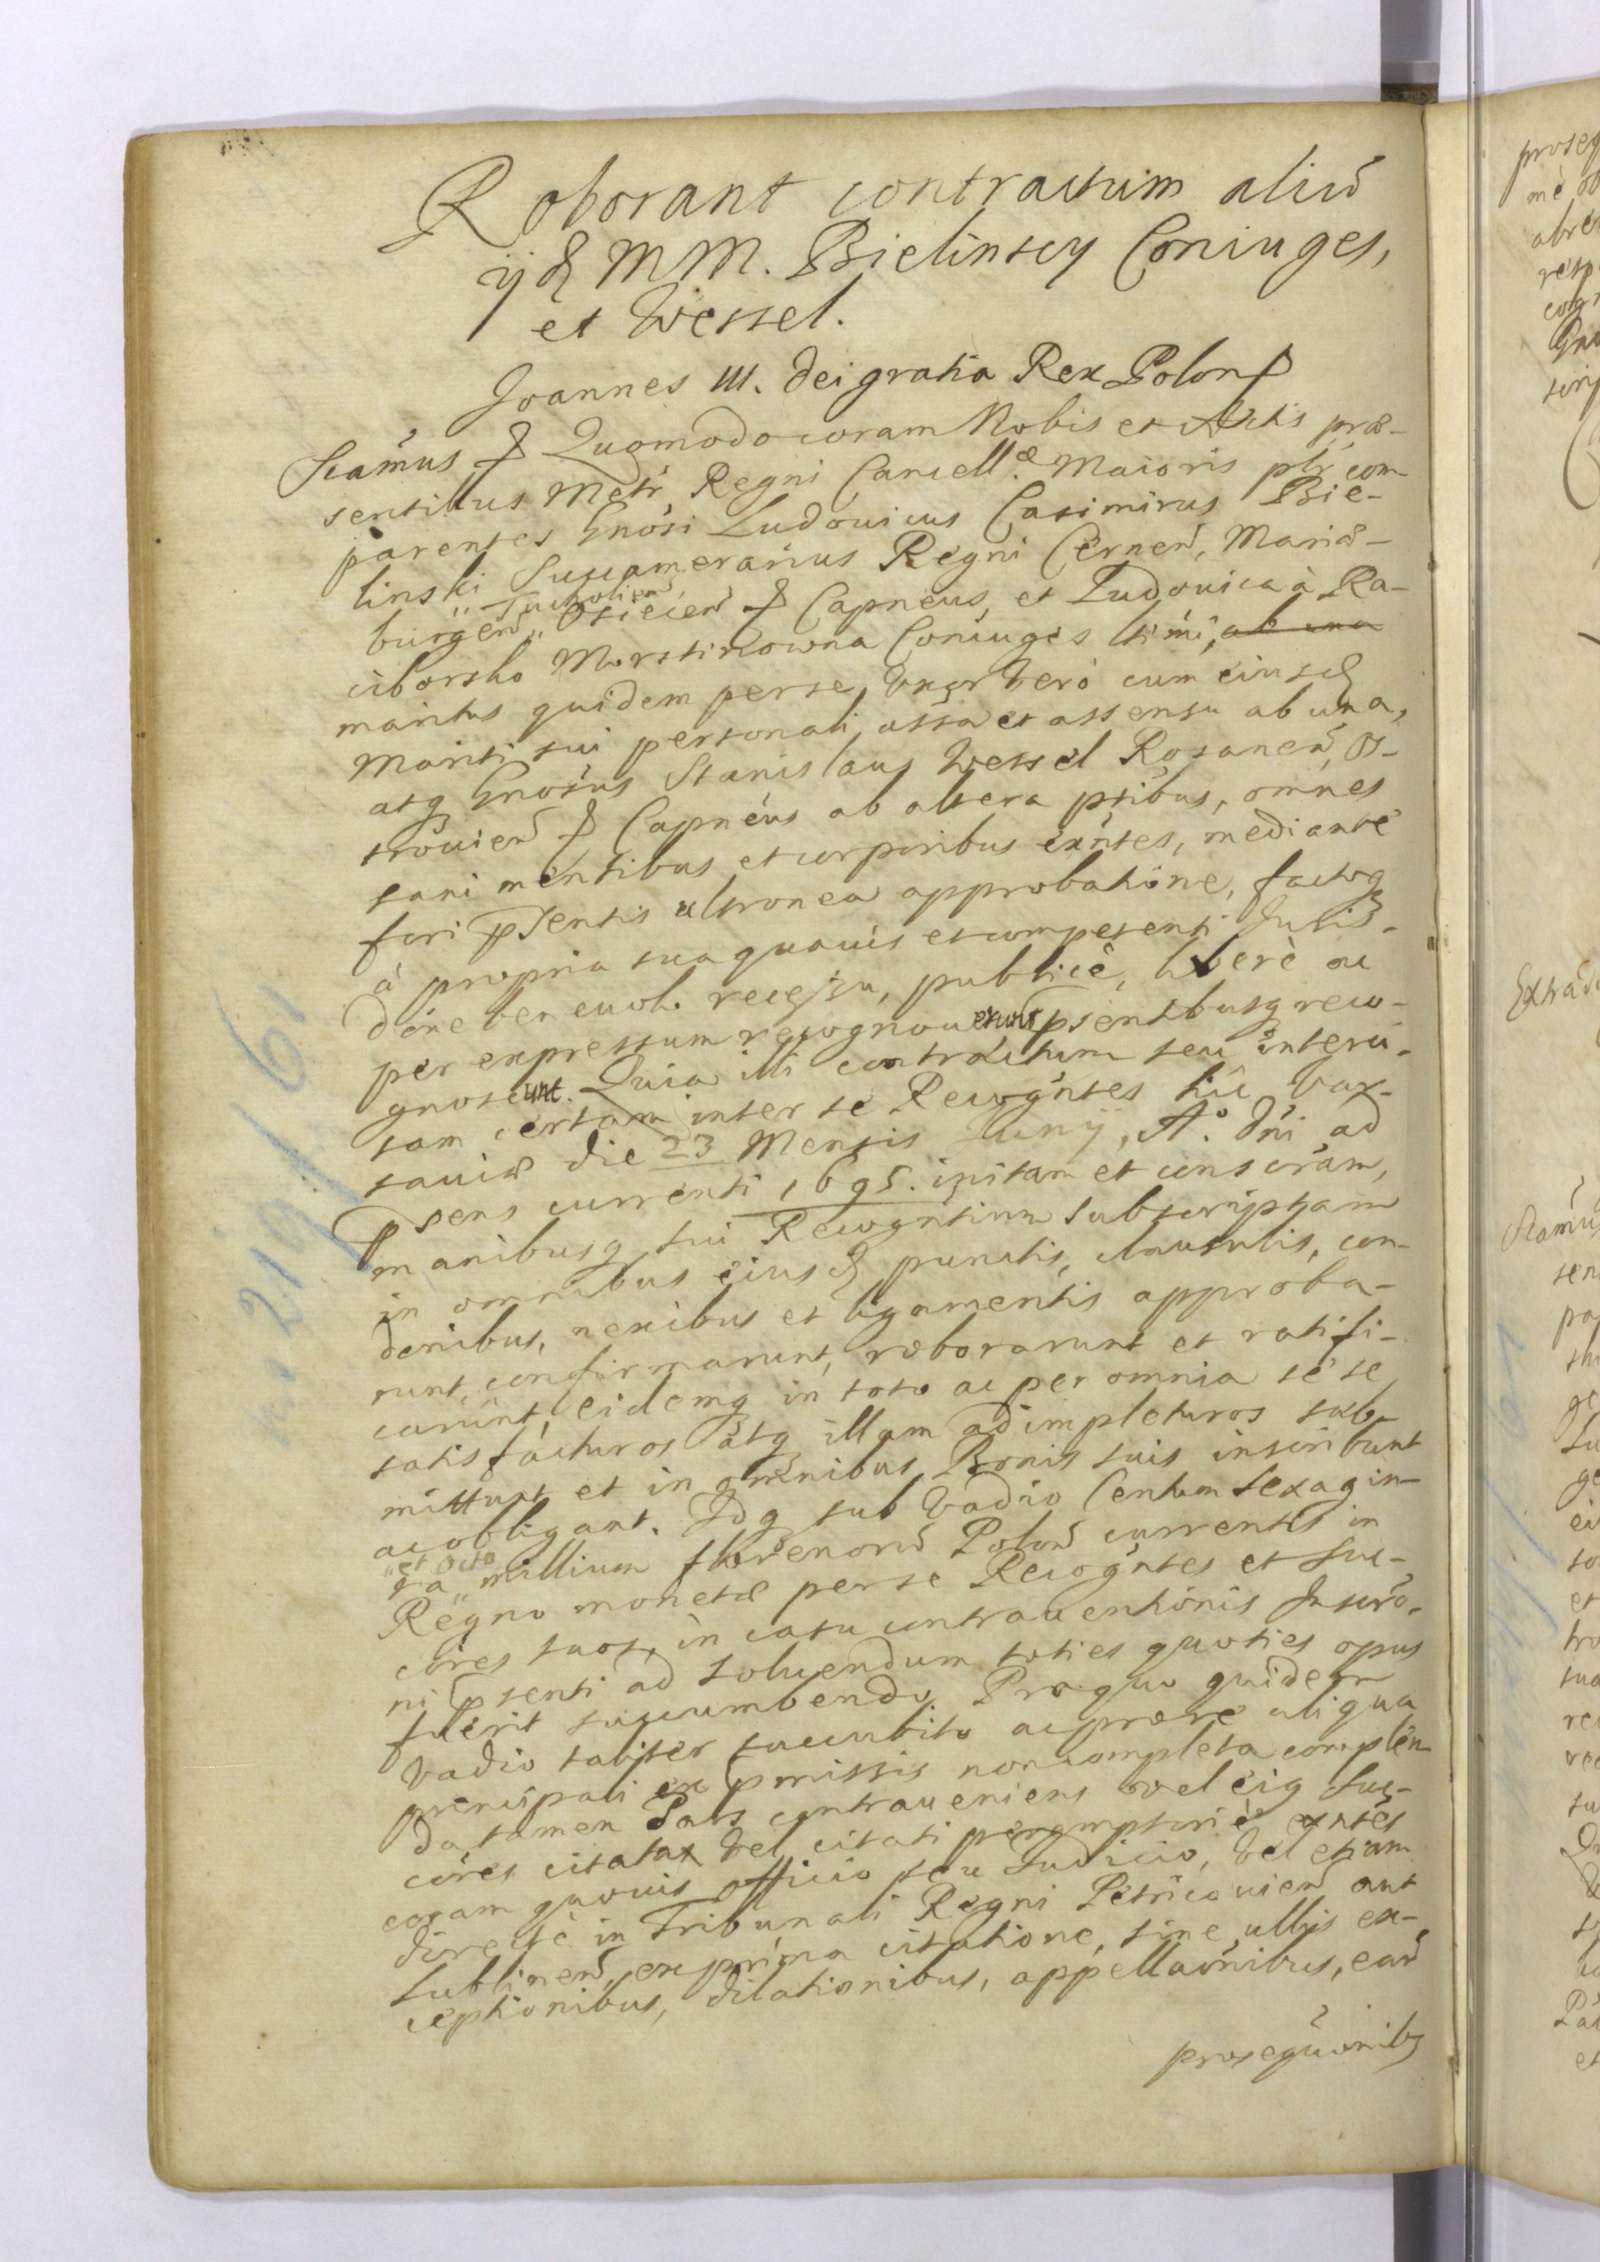 Roborant contractum aliū
ijd MM. Bielinscy Coniuges,
et Wessel.
Joannes III. Dei gratia Rex Polon
Scámus Quomodo coram Nobis et Actis præ-
sentibus Metr. Regni Cancell.æ Maioris plr com
parentes Gnósi Ludovicus Casimirus Bie-
linski Succamerarius Regni Cernen, Mariæ-
burgen „Tucholien„ Osiecien Capneus, et Ludovica à Ra-
ciborsko Morstinowna Coniuges ltimi, ab una
maritus quidem per se, Uxor verò cum eiusd
Mariti sui personali assa et assensu ab una,
atq Gnosus Stanislaus Wessel Rozanen, Os-
trouien Capnéus ab altera ptibus, omnes
sani mentibus et corporibus exntes, mediante
fori psentis ultronea approbatione, factoq
à propria sua quauis et competenti Juris-
dóne ber euol. recessu, publicè, liberè ac
per expressum recognouerunt psentibusq reco-
gnoscunt. Quia illi contractum seu interci-
sam certam inter se Recogntes hîc Var-
sauiæ die 23 Mensis Juny, A.º Dni ad
psens currenti 1695. initam et conscram,
manibusq sui Recogntium subscriptam
in omnibus eiusd punctis, clausulis, con-
denibus, nexibus et ligamentis approba-
runt, confirmarunt, roborarunt et ratifi-
carunt, eidemq in toto ac per omnia se se
satisfacturos atq illam adimpleturos sub-
mittunt et in omnibus Bonis suis inscribunt
ac obligant. Idq sub Vadio Centum sexagin-
ta „et octo„ millium florenorū Polon currentis in
Regno monetæ per se Recogntes et suc-
córes suos, in casu contrauentionis Inscro-
ni psenti ad soluendum toties quoties opus
fuerit succumbendo. Pro quo quidem
vadio taliter succubito ac prore aliqua
principali ex pmissis non completa complen
da tamen Pars contraueniens vel eiq suc-
córes citata vel citati peremptoriè exntes
coram quouis officio seu Iudicio, vel etiam
directè in Tribunali Regni Petricouien aut
Lublinen, ex prima citatione, sine ullis ex-
ceptionibus, dilationibus, appellaónibus, earū
prosequónibq